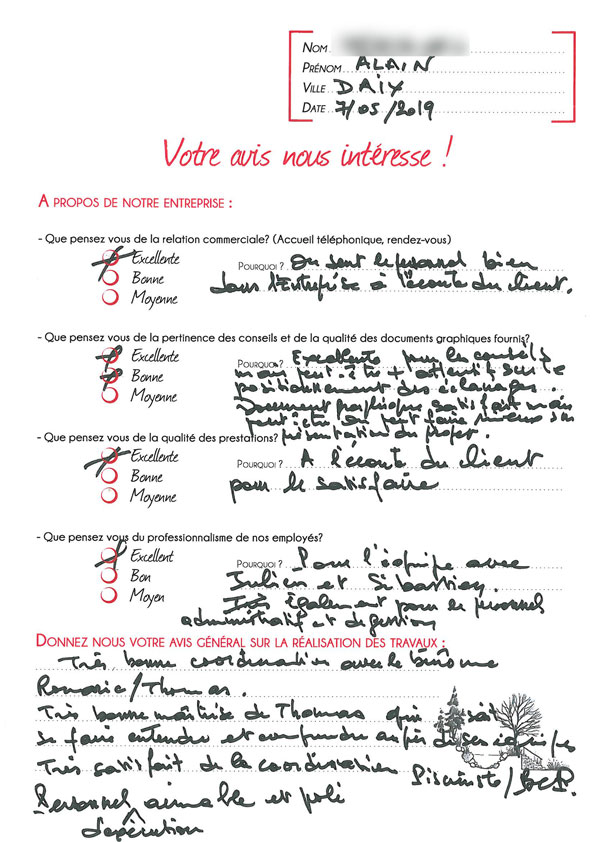 NOM
PRÉNOM ALAIN
VILLE DAIX
DATE 7/05/2019
Votre avis nous intéresse !
A PROPOS DE NOTRE ENTREPRISE :
- Que pensez vous de la relation commerciale? (Accueil téléphonique, rendez-vous)
Excellente
Bonne
Moyenne
POURQUOI ? On sent le personnel bien
dans l'Entreprise à l'écoute du client.
- Que pensez vous de la pertinence des conseils et de la qualité des documents graphiques fournis?
Excellente
Bonne
Moyenne
POURQUOI ? Excellente pour les conseils
mais peut-être + attentifs sur le
positionnement des éclairages.
Document graphique satisfait mais
peut être un petit faire mieux sur
présentation du projet.
- Que pensez vous de la qualité des prestations?
Excellente
Bonne
Moyenne
POURQUOI ? A l'écoute du client
pour le satisfaire
- Que pensez vous du professionnalisme de nos employés?
Excellent
Bon
Moyen
POURQUOI ? Pour l'équipe avec
Julien et Sébastien.
également pour le personnel
administratif et de gestion
DONNEZ NOUS VOTRE AVIS GÉNÉRAL SUR LA RÉALISATION DES TRAVAUX :
Très bonne coordination avec le binôme
Romaric/Thomas.
Très bonne maîtrise de Thomas qui sait
se faire entendre et comprendre auprès de ses équipes
Très satisfait de la coordination Pisciniste/
Personnel aimable et poli
d'exécution